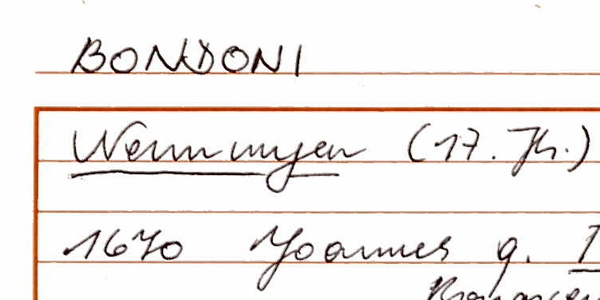 BONDONI
Nennungen (17. Jh.)
1670 Joannes q.